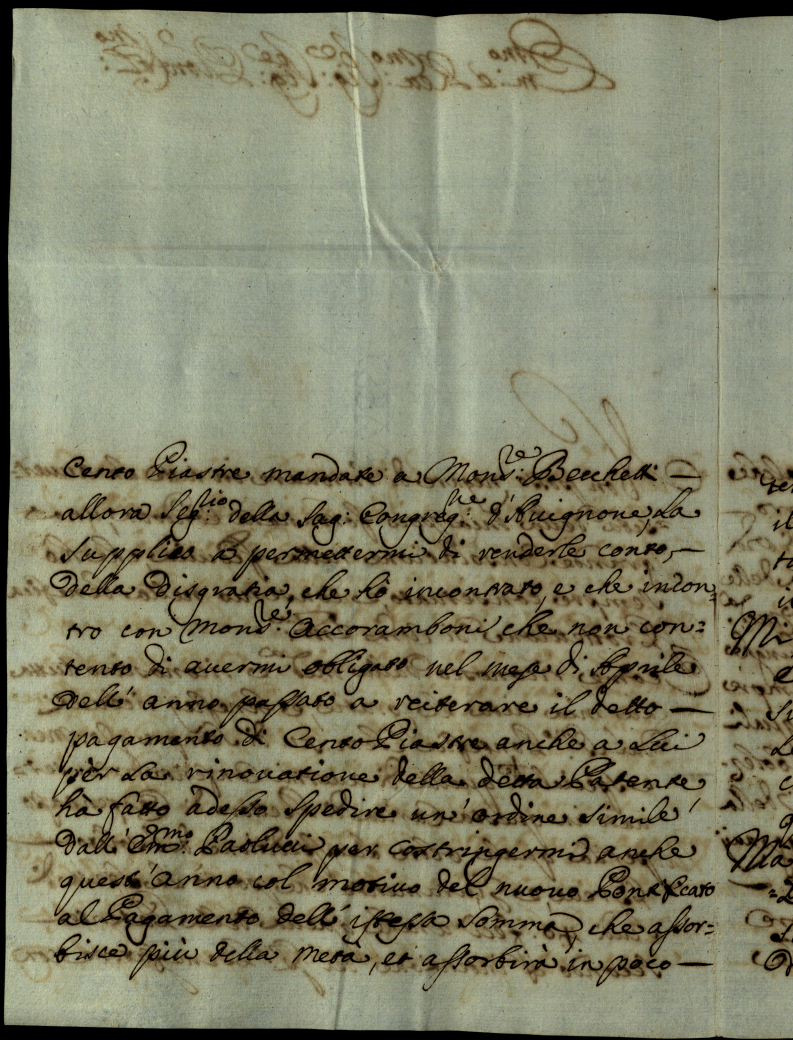 Cento Piastre mandate a Mons:re Becchetti —
allora Seg:rio della Sag: Congreg:ne d'Auignone, La
supplico à permettermi di renderle conto, —
della disgratia, che hò incontrato, e che incon,
tro con Mons:re Accoramboni che non con:
tento di auermi obligato nel mese di Aprile
dell'anno passato a reiterare il detto —
pagamento di Cento Piastre anche a Lui
per La rinouatione della detta Patente
hà fatto adesso spedire un'ordine simile
dall'Em:mo Paolucci per costringermi anche
quest'anno col motiuo del nuouo Pontificato
al Pagamento dell'istessa somma, che assor:
bisce più della metà, et assorbirà in poco —